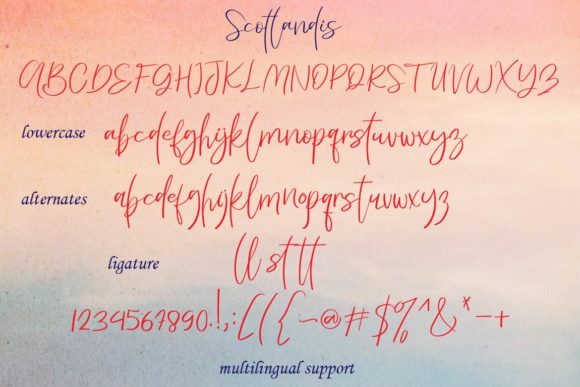 Scotlandis
ABCDEFGHIJKLMNOPQRSTUVWXYZ
lowercase abcdefghijklmnopqrstuvwxyz
alternates abcdefghijklmnopqrstuvwxyz
ligature ll st tt
1234567890.!,:[({~-@#$%^&*-+
multilingual support